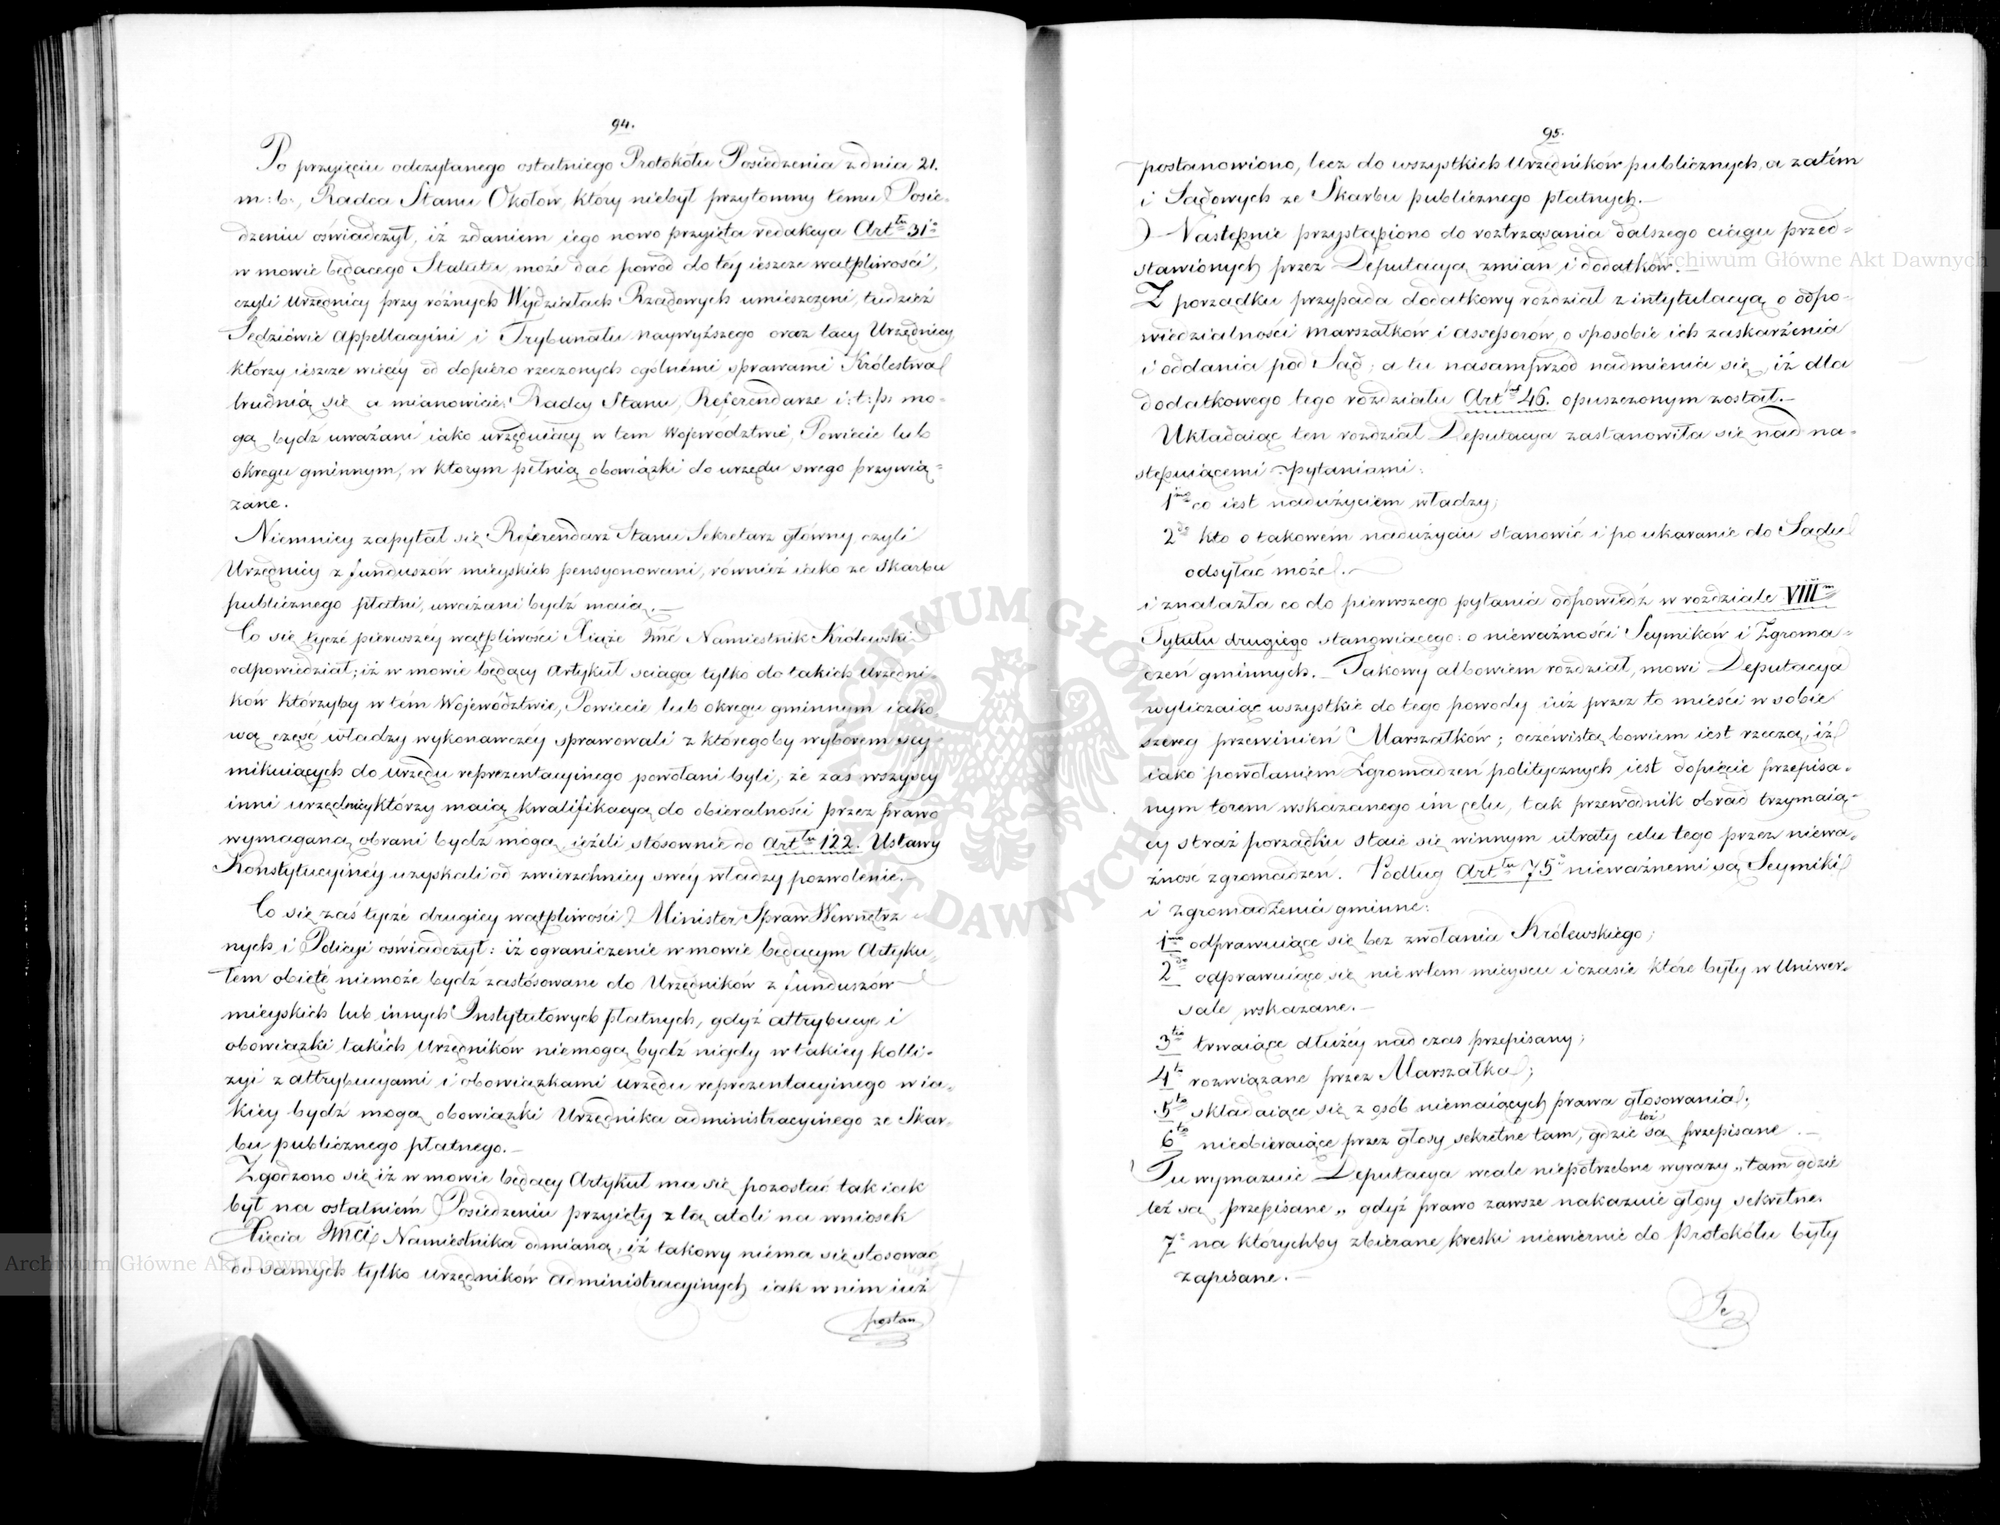 94.
Po przyięciu odczytanego ostatniego Protokółu Posiedzenia z dnia 21.
m: b:, Radca Stanu Okołów, który niebył przytomny temu Posie-
dzeniu oświadczył, iż zdaniem iego nowo przyięta redakcya Artłu 31º
w mowie będącego Statutu, może dać powód do tey ieszcze wątpliwości,
czyli Urzędnicy przy różnych Wydziałach Rządowych umieszczeni, tudzież
Sędziowie Appellacyini i Trybunału naywyższego oraz tacy Urzędnicy,
którzy ieszcze więcéy od dopiero rzeczonych ogólnémi sprawami Królestwa
trudnią się a mianowicie: Radcy Stanu, Referendarze i: t: p: mo-
gą bydź uważani iako urzęduiący w tem Wojewodztwie, Powiecie lub
okręgu gminnym, w którym pełnią obowiązki do urzędu swego przywią-
zane.
Niemniey zapytał się Referendarz Stanu Sekretarz główny, czyli
Urzędnicy z funduszów mieyskich pensyonowani, również iako ze Skarbu
publicznego płatni, uważani bydź maią.—
Co się tycze pierwszey wątpliwości Xiąże Jmć Namiestnik Królewski
odpowiedział; iż w mowie będący Artykuł sciąga tylko do takich Urzędni-
ków którzyby w tém Województwie, Powiecie lub okręgu gminnym iako-
wą część władzy wykonawczéy sprawowali z któregoby wyborem sey-
mikuiących do urzędu reprezentacyinego powołani byli; że zaś wszyscy
inni urzędnicy którzy maią kwalifikacyą do obieralności przez prawo
wymaganą obrani bydź mogą, ieżeli stósownie do Artłu 122. Ustawy
Konstytucyinéy uzyskali od zwierzchniey swey władzy pozwolenie.—
Co się zaś tycze drugiey wątpliwości, Minister Spraw Wewnętrz-
nych i Policyi oświadczył: iż ograniczenie w mowie będącym Artyku-
łem obięte niemoże bydź zastósowane do Urzędników z funduszów
mieyskich lub innych Instytutowych płatnych, gdyż attrybucye i
obowiązki takich Urzędników niemogą bydź nigdy w takiey kolli-
zyi z attrybucyami i obowiązkami Urzędu reprezentacyinego w ia-
kiey bydź mogą obowiązki Urzędnika administracyinego ze Skar-
bu publicznego płatnego.—
Zgodzono się iż w mowie będący Artykuł ma się pozostać tak iak
był na ostatniém Posiedzeniu przyięty z tą atoli na wniosek
Xięcia Jmci Namiestnika odmianą, iż takowy niema się stosować
do samych tylko urzędników administracyinych iak w nim iuż
postan
95.
postanowiono, lecz do wszystkich Urzędników publicznych, a zatém
i Sądowych ze Skarbu publicznego płatnych.—
Następnie przystąpiono do roztrząsania dalszego ciągu przed-
stawionych przez Deputacyą zmian i dodatków.—
Z porządku przypada dodatkowy rozdział z intytulacyą o odpo-
wiedzialności Marszałków i Assessorów, o sposobie ich zaskarżenia
i oddania pod Sąd; a tu nasamprzód nadmienia się, iż dla
dodatkowego tego rozdziału Artł 46. opuszczonym został.—
Układaiąc ten rozdział Deputacya zastanowiła się nad na-
stępuiącemi pytaniami:
1mo co iest nadużyciem władzy;
2do kto o takowém nadużyciu stanowić i po ukaranie do Sądu
odsyłać może.—
i znalazła co do pierwszego pytania odpowiedź w rozdziale VIIIm
Tytułu drugiego stanowiącego: o nieważności Seymików i Zgroma-
dzeń gminnych.— Takowy albowiem rozdział, mowi Deputacya
wyliczaiąc wszystkie do tego powody iuż przez to mieści w sobie
szereg przewinień Marszałków; oczéwistą bowiem iest rzeczą, iż
iako powołaniem Zgromadzeń politycznych iest dopięcie przepisa-
nym torem wskazanego im celu, tak przewodnik obrad trzymaią-
cy straż porządku staie się winnym utraty celu tego przez niewa-
żność zgromadzeń. Podług Artłu 75º nieważnemi są Seymiki
i Zgromadzenia gminne:
1mo odprawuiące się bez zwołania Królewskiego;
2do odprawuiące się nie w tem mieyscu i czasie które były w Uniwer-
sale wskazane.—
3tio trwaiące dłużéy nad czas przepisany;
4to rozwiązane przez Marszałka;
5to składaiące się z osób niemaiących prawa głosowania;
6to nieobieraiące przez głosy sekretne tam, gdzie też są przepisane.—
Tu wymazuie Deputacya wcale niepotrzebne wyrazy „tam gdzie
też są przepisane„ gdyż prawo zawsze nakazuie głosy sekretne.
7º na którychby zbierane kreski niewiernie do Protokółu były
zapisane.—
Te
Archiwum Główne Akt Dawnych
Archiwum Główne Akt Dawnych
ARCHIWUM GŁÓWNE AKT DAWNYCH